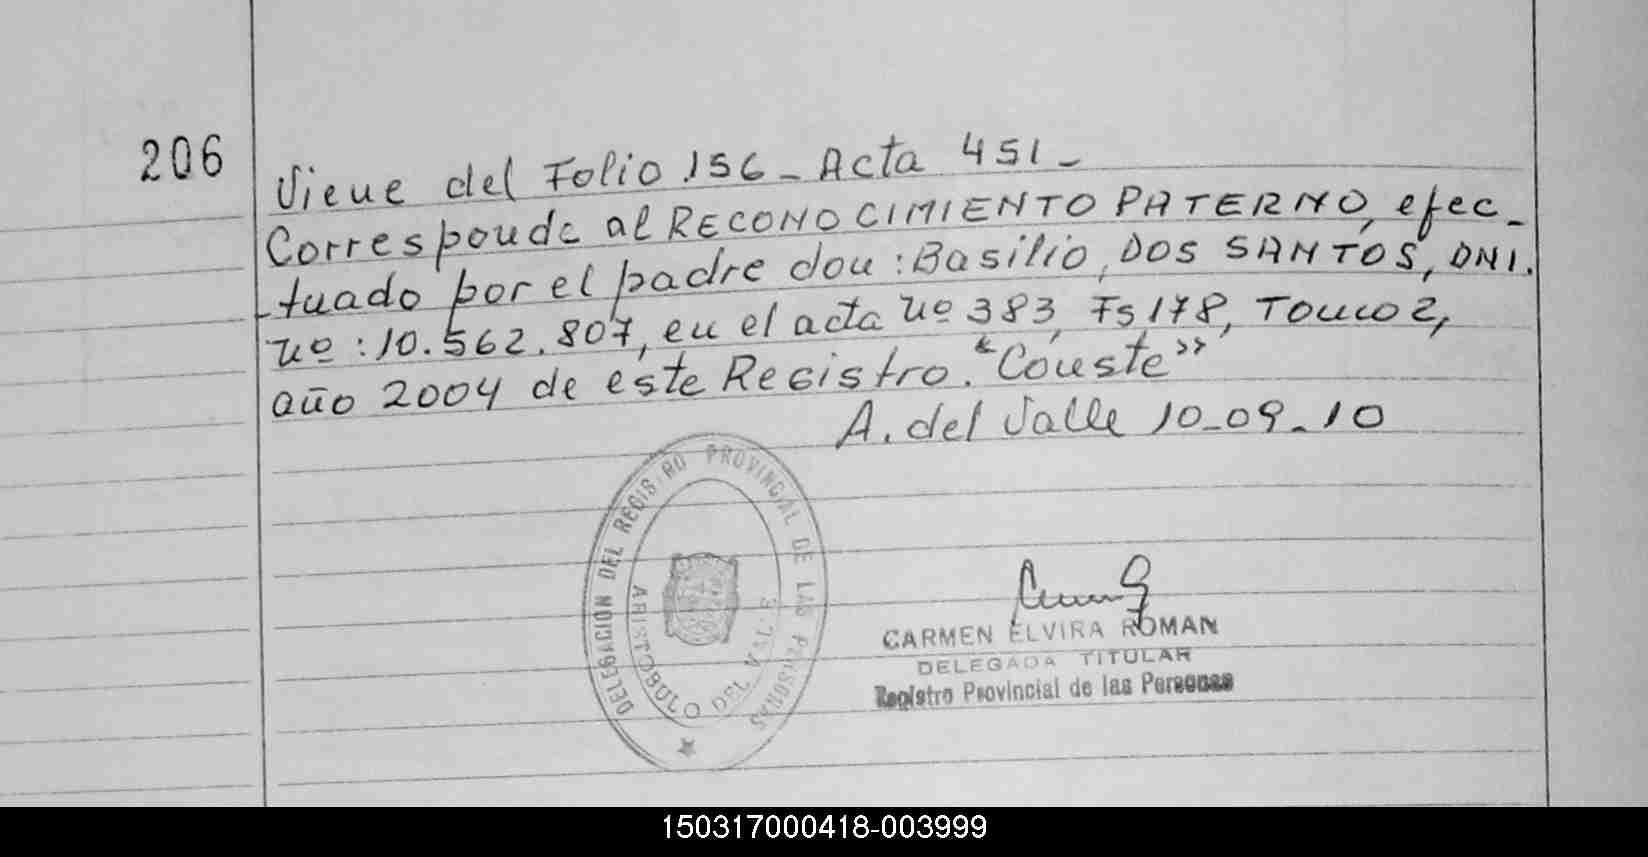 206
Viene del Folio 156 - Acta 451 -
Corresponde al RECONOCIMIENTO PATERNO, efec-
tuado por el padre don: Basilio, DOS SANTOS, DNI.
nº: 10.562.807, en el acta nº 383, Fs 178, Tomo 2,
año 2004 de este Registro. "Conste"
A. del Valle 10-09-10
DELEGACION DEL REGISTRO PROVINCIAL DE LAS PERSONAS
ARISTOBULO DEL VALLE
CARMEN ELVIRA ROMAN
DELEGADA TITULAR
Registro Provincial de las Personas
150317000418-003999